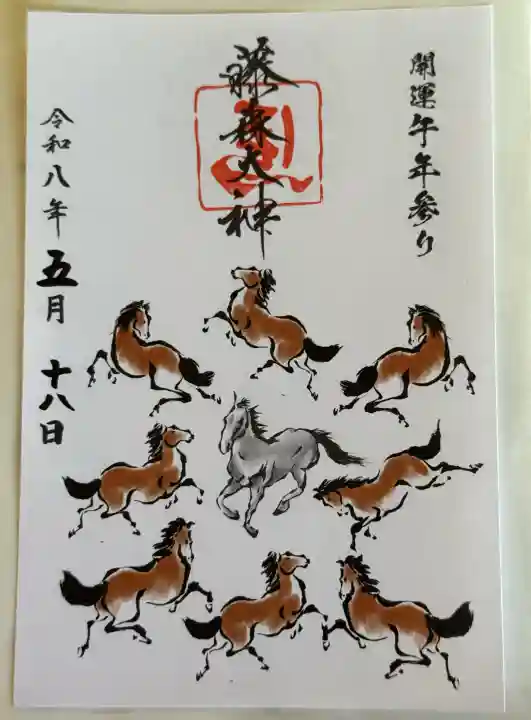 開運午年参り
藤森大神
令和八年五月十八日